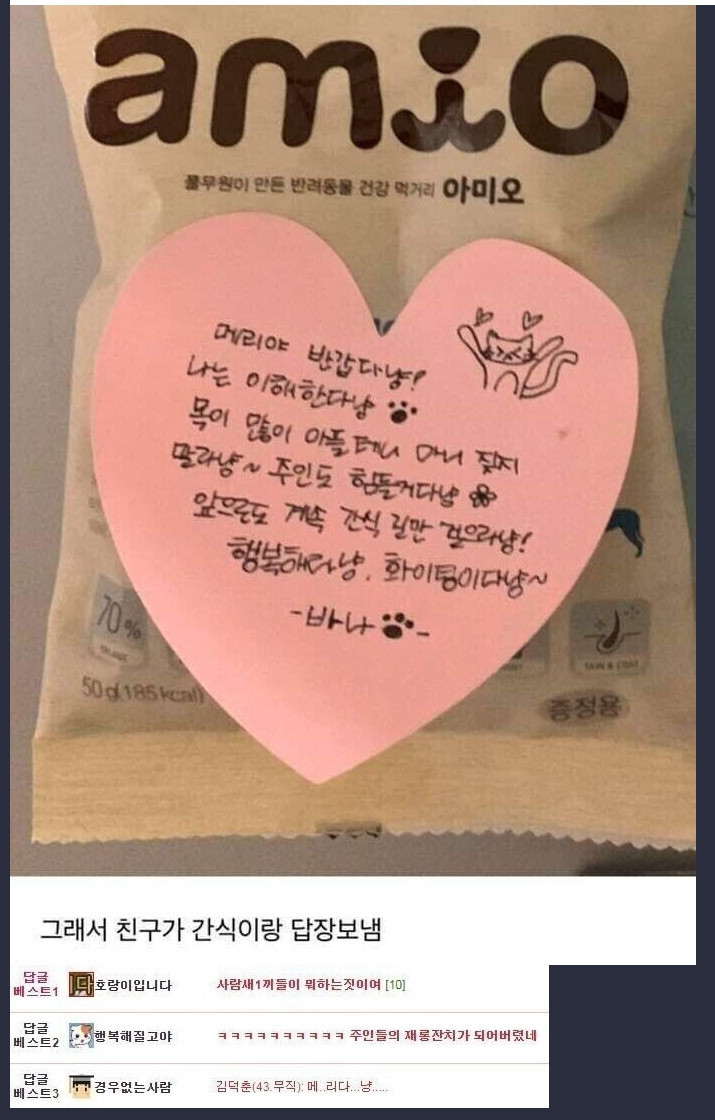 amio
풀무원이 만든 반려동물 건강 먹거리 아미오
메리야 반갑다냥!
나는 이해한다냥
목이 많이 아플테니 마니 짖지
말라냥~ 주인도 힘들거다냥
앞으로도 계속 간식 길만 걸으라냥!
행복해라냥. 화이팅이다냥~
-바나-
70%
SKIN & COAT
50g(185kcal)
증정용
그래서 친구가 간식이랑 답장보냄
답글
베스트1 호랑이입니다 사람새1끼들이 뭐하는짓이여 [10]
답글
베스트2 행복해질고야 ㅋㅋㅋㅋㅋㅋㅋㅋㅋㅋ 주인들의 재롱잔치가 되어버렸네
답글
베스트3 경우없는사람 김덕춘(43.무직): 메..리다...냥.....